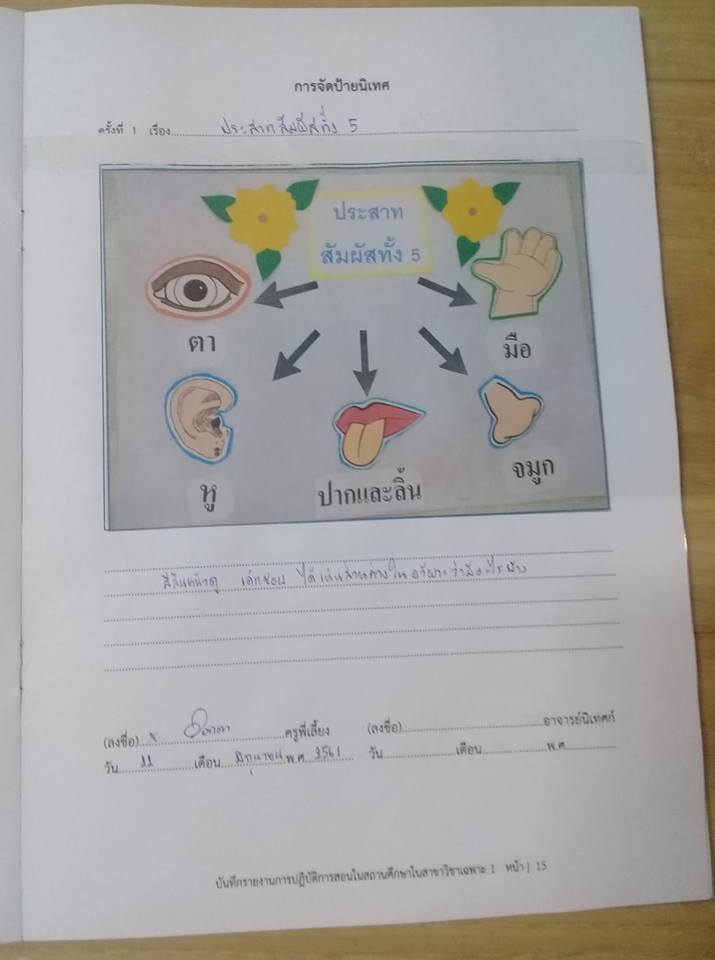 การจัดป้ายนิเทศ
ครั้งที่ 1 เรื่อง ประสาทสัมผัสทั้ง 5
ประสาท
สัมผัสทั้ง 5
ตา
มือ
หู
ปากและลิ้น
จมูก
สีสันหน้าดู เด็กชอบ ได้เห็นส่วนต่างในอวัยวะว่ามีอะไรบ้าง
(ลงชื่อ) ครูพี่เลี้ยง (ลงชื่อ) อาจารย์นิเทศก์
วัน 22 เดือน มิถุนายน พ.ศ. 2561 วัน เดือน พ.ศ.
บันทึกรายงานการปฏิบัติการสอนในสถานศึกษาในสาขาวิชาเฉพาะ 1 หน้า | 15